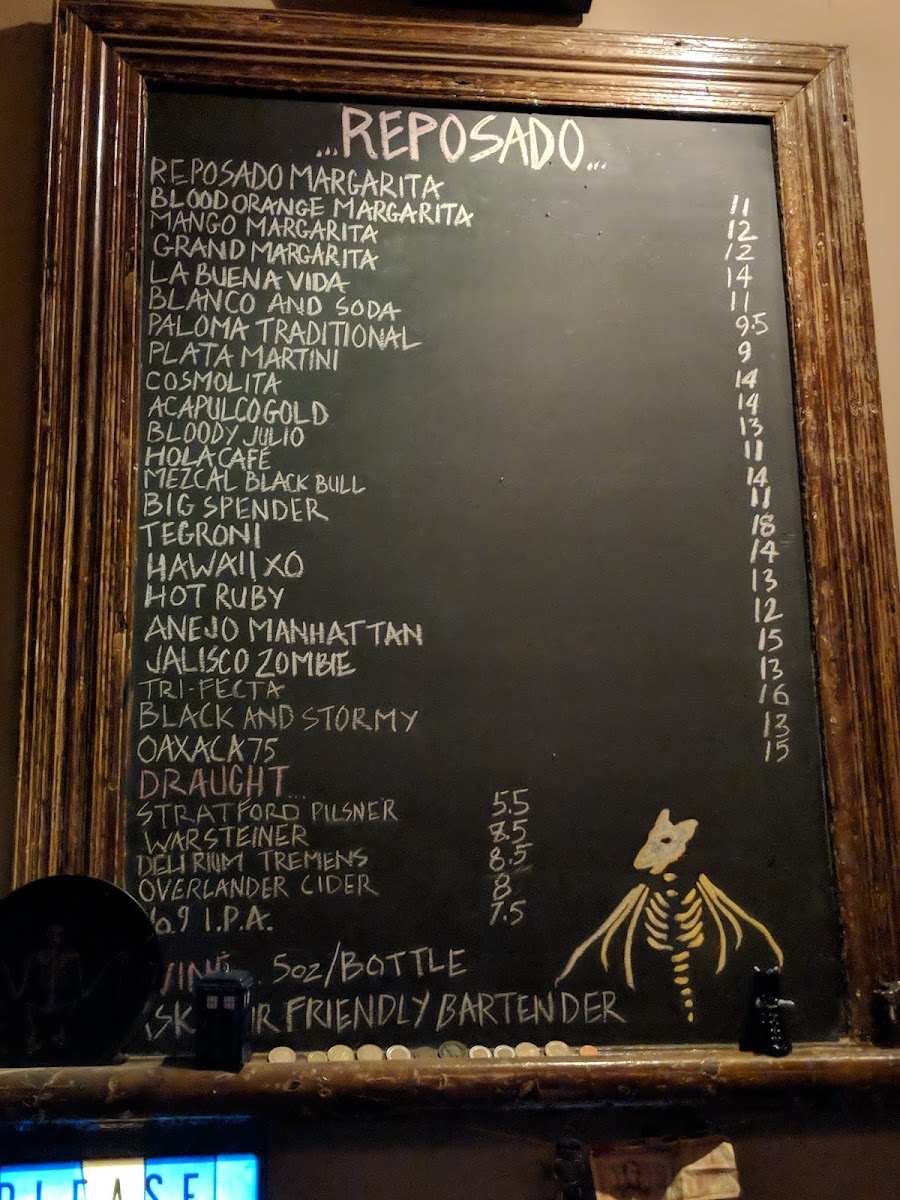 ...REPOSADO...
REPOSADO MARGARITA 11
BLOOD ORANGE MARGARITA 12
MANGO MARGARITA 12
GRAND MARGARITA 14
LA BUENA VIDA 11
BLANCO AND SODA 9.5
PALOMA TRADITIONAL 9
PLATA MARTINI 14
COSMOLITA 14
ACAPULCO GOLD 13
BLOODY JULIO 11
HOLA CAFÉ 14
MEZCAL BLACK BULL 11
BIG SPENDER 18
TEGRONI 14
HAWAII XO 13
HOT RUBY 12
ANEJO MANHATTAN 15
JALISCO ZOMBIE 13
TRI-FECTA 16
BLACK AND STORMY 13
OAXACA 75 15
DRAUGHT...
STRATFORD PILSNER 5.5
WARSTEINER 8.5
DELIRIUM TREMENS 8.5
OVERLANDER CIDER 8
I.P.A. 7.5
WINE 5oz/BOTTLE
ASK FRIENDLY BARTENDER
PLEASE